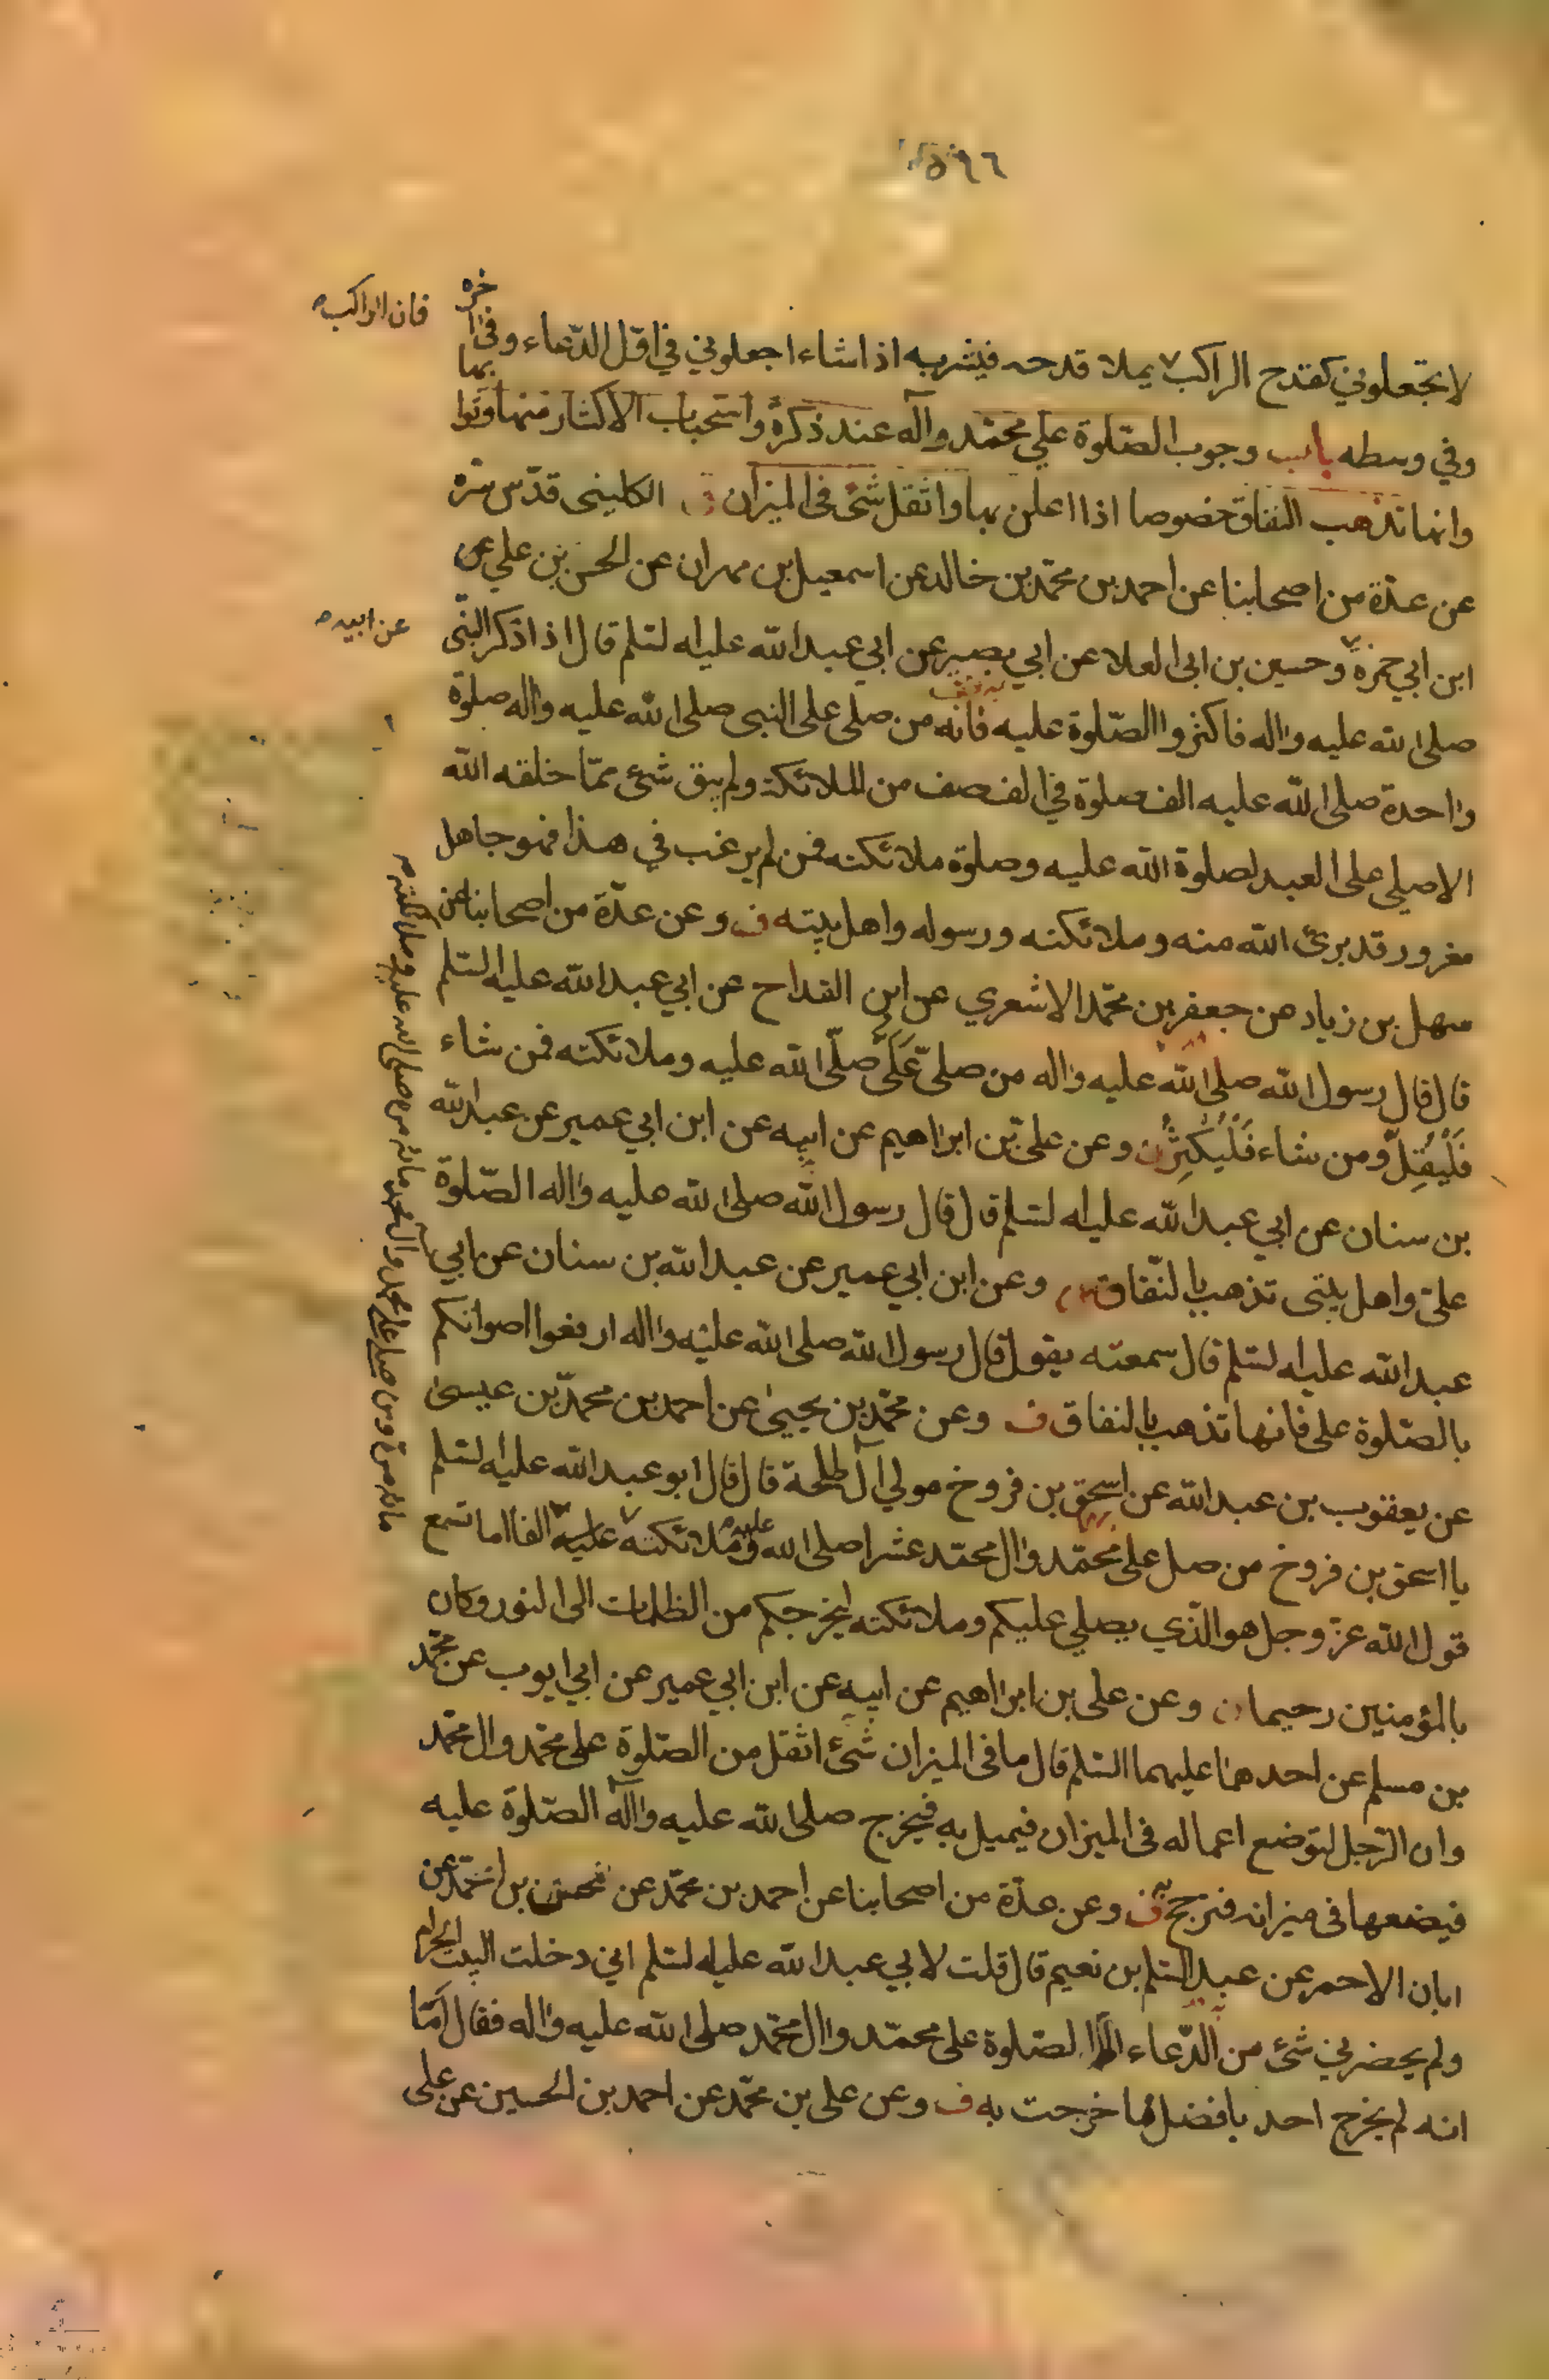 ٥٩٦
لا تجعلوني كقدح الراكب يملا قدحه فيشربه اذا شاء اجعلوني في اوّل الدّعاء وفي اخره
فان الراكب
وفي وسطه باب وجوب الصّلوة علي محمّد وآله عند ذكره واستحباب الاكثار منها وثوابها
وانها تذهب النفاق خصوصا اذا اعلن بها واثقل شئ في الميزان الكليني قدّس سرّه
عن عدّة من اصحابنا عن احمد بن محمّد بن خالد عن اسمعيل بن مهران عن الحسن بن علي عن
ابن ابي حمزة وحسين بن ابي العلا عن ابي بصير عن ابي عبد الله عليه السّلم قال اذا ذكر النّبي
عن ابيه
صلى الله عليه واله فاكثروا الصّلوة عليه فانه من صلى على النبي صلى الله عليه واله صلوة
واحدة صلى الله عليه الف صلوة في الف صف من الملائكة ولم يبق شئ ممّا خلقه الله
الا صلي على العبد لصلوة الله عليه وصلوة ملائكته فمن لم يرغب في هذا فهو جاهل
مغرور قد برئ الله منه وملائكته ورسوله واهل بيته ف وعن عدّة من اصحابنا عن
سهل بن زياد عن جعفر بن محمّد الاشعري عن ابن القداح عن ابي عبد الله عليه السّلم
قال قال رسول الله صلى الله عليه واله من صلىّ عَلَىَّ صلّى الله عليه وملائكته فمن شاء
فَلْيُقِلّ ومن شاء فَلْيُكْثِرْ وعن علي بن ابراهيم عن ابيه عن ابن ابي عمير عن عبد الله
بن سنان عن ابي عبد الله عليه السّلم قال قال رسول الله صلى الله عليه واله الصّلوة
علىّ واهل بيتى تذهب بالنّفاق وعن ابن ابي عمير عن عبد الله بن سنان عن ابي
عبد الله عليه السّلم قال سمعته يقول قال رسول الله صلى الله عليه واله ارفعوا اصواتكم
بالصّلوة على فانها تذهب بالنفاق ف وعن محمّد بن يحيى عن احمد بن محمّد بن عيسى
عن يعقوب بن عبد الله عن اسحق بن فروخ مولي آل طلحة قال قال ابو عبد الله عليه السّلم
يا اسحق بن فروخ من صل على محمّد وال محمّد عشرا صلى الله عليه وملائكته عليه الفا اما تسمع
قول الله عز وجل هو الّذي يصلي عليكم وملائكته ليخرجكم من الظلمات الى النور وكان
بالمؤمنين رحيما وعن على بن ابراهيم عن ابيه عن ابن ابي عمير عن ابي ايوب عن محمّد
بن مسلم عن احدهما عليهما السّلم قال ما فى الميزان شئ اثقل من الصّلوة على محمّد وال محمّد
وان الرّجل لتوضع اعماله فى الميزان فيميل به فيخرج صلى الله عليه وآله الصّلوة عليه
فيضعها فى ميزانه فترجح ف وعن عدّة من اصحابنا عن احمد بن محمّد عن محسن بن احمد عن
ابان الاحمر عن عبد السّلم بن نعيم قال قلت لابي عبد الله عليه السّلم اني دخلت البيت الحرام
ولم يحضرني شئ من الدّعاء الا الصّلوة على محمّد وال محمّد صلى الله عليه واله فقال اَمّا
انه لم يخرج احد بافضل مما خرجت به ف وعن على بن محمّد عن احمد بن الحسين عن على
مائة مرة ومن صلى على محمد وال محمد مائة مرة صلى الله عليه وملائكته